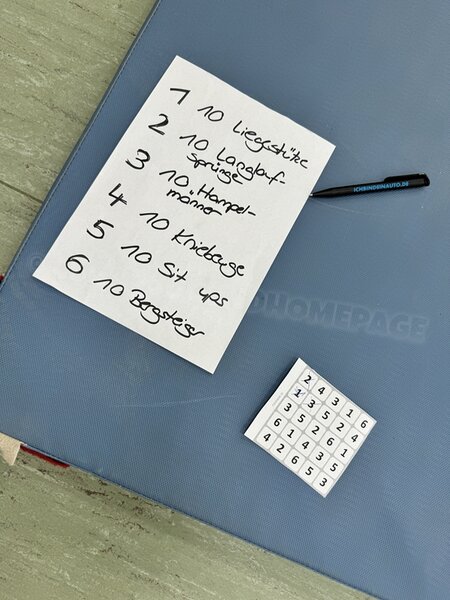 1 10 Liegestütze
2 10 Langlauf-
sprünge
3 10 Hampel-
männer
4 10 Kniebeuge
5 10 Sit ups
6 10 Bergsteiger
ICHBINDEINAUTO.DE
HOMEPAGE
2 4 3 1 6
1 3 5 2 4
3 5 2 6 1
6 1 4 3 5
4 2 6 5 3